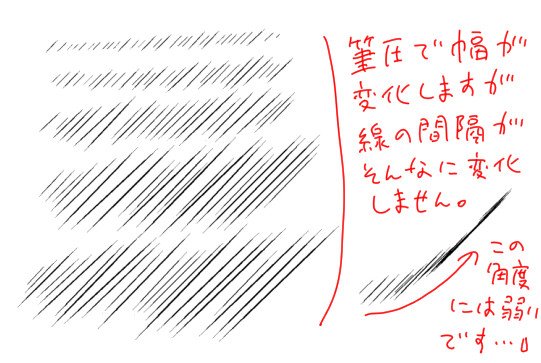 筆圧で幅が
変化しますが
線の間隔が
そんなに変化
しません。
この
角度
には弱い
です…」